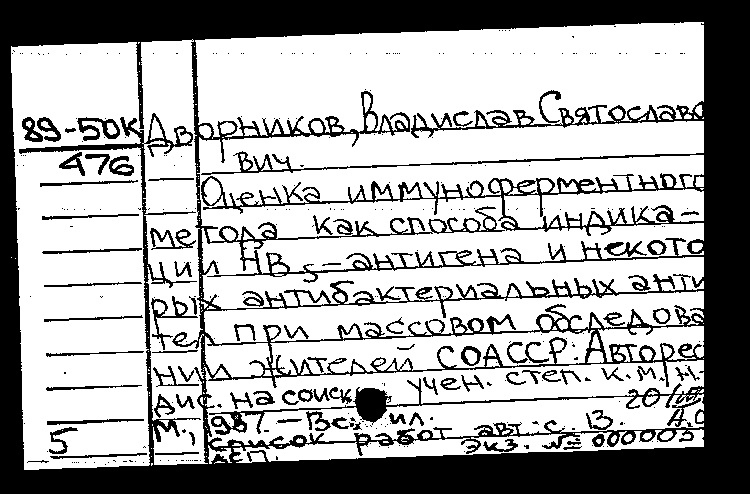 89-50К Дворников, Владислав Святославо
476 вич.
Оценка иммуноферментного
метода как способа индика-
ции HBs-антигена и некото
рых антибактериальных анти
тел при массовом обследова
нии жителей СОАССР: Авторес
дис. на соиск учен. степ. к.м.н.
М., 1987. - ил. 20
5 список работ авт.: с. 13.
экз. № 000003